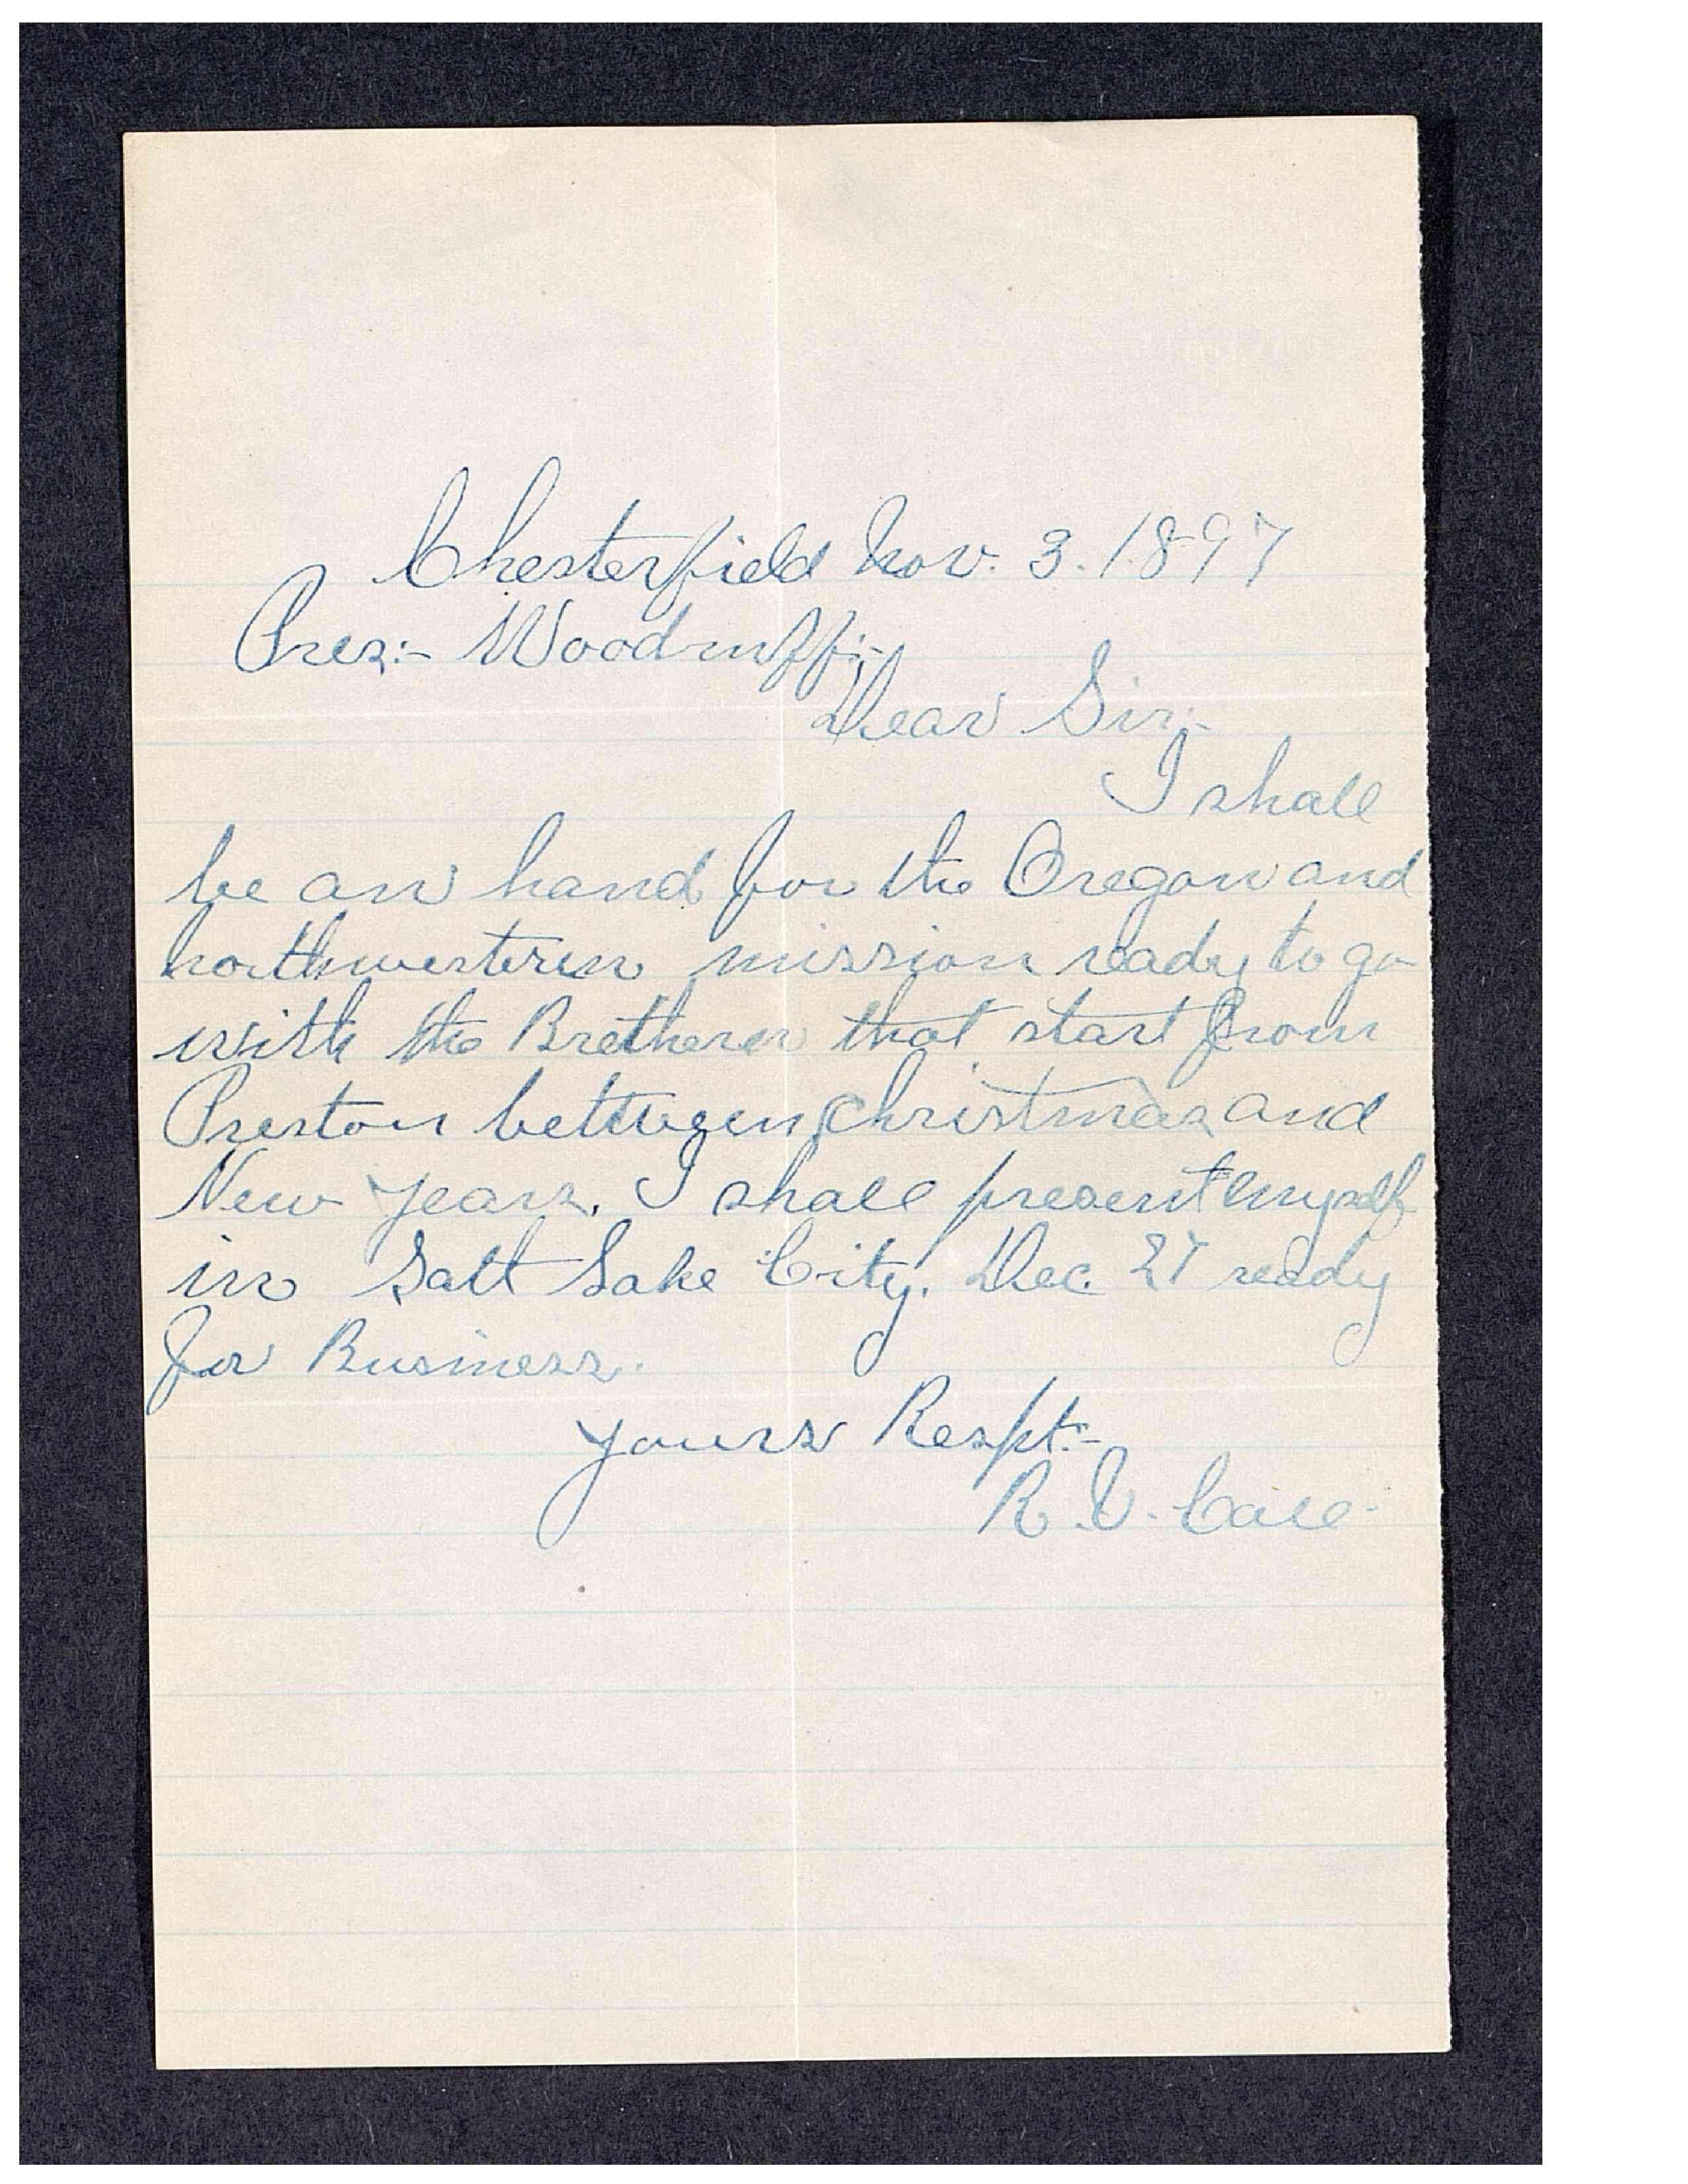 Chesterfield Nov. 3. 1897
Pres:- Woodruff:-
Dear Sir:-
I shall
be on hand for the Oregon and
northwestern mission ready to go
with the Bretheren that start from
Preston between Christmas and
New Years. I shall present myself
in Salt Lake City. Dec. 27 ready
for Business.
Yours Respt.-
R. V. Call